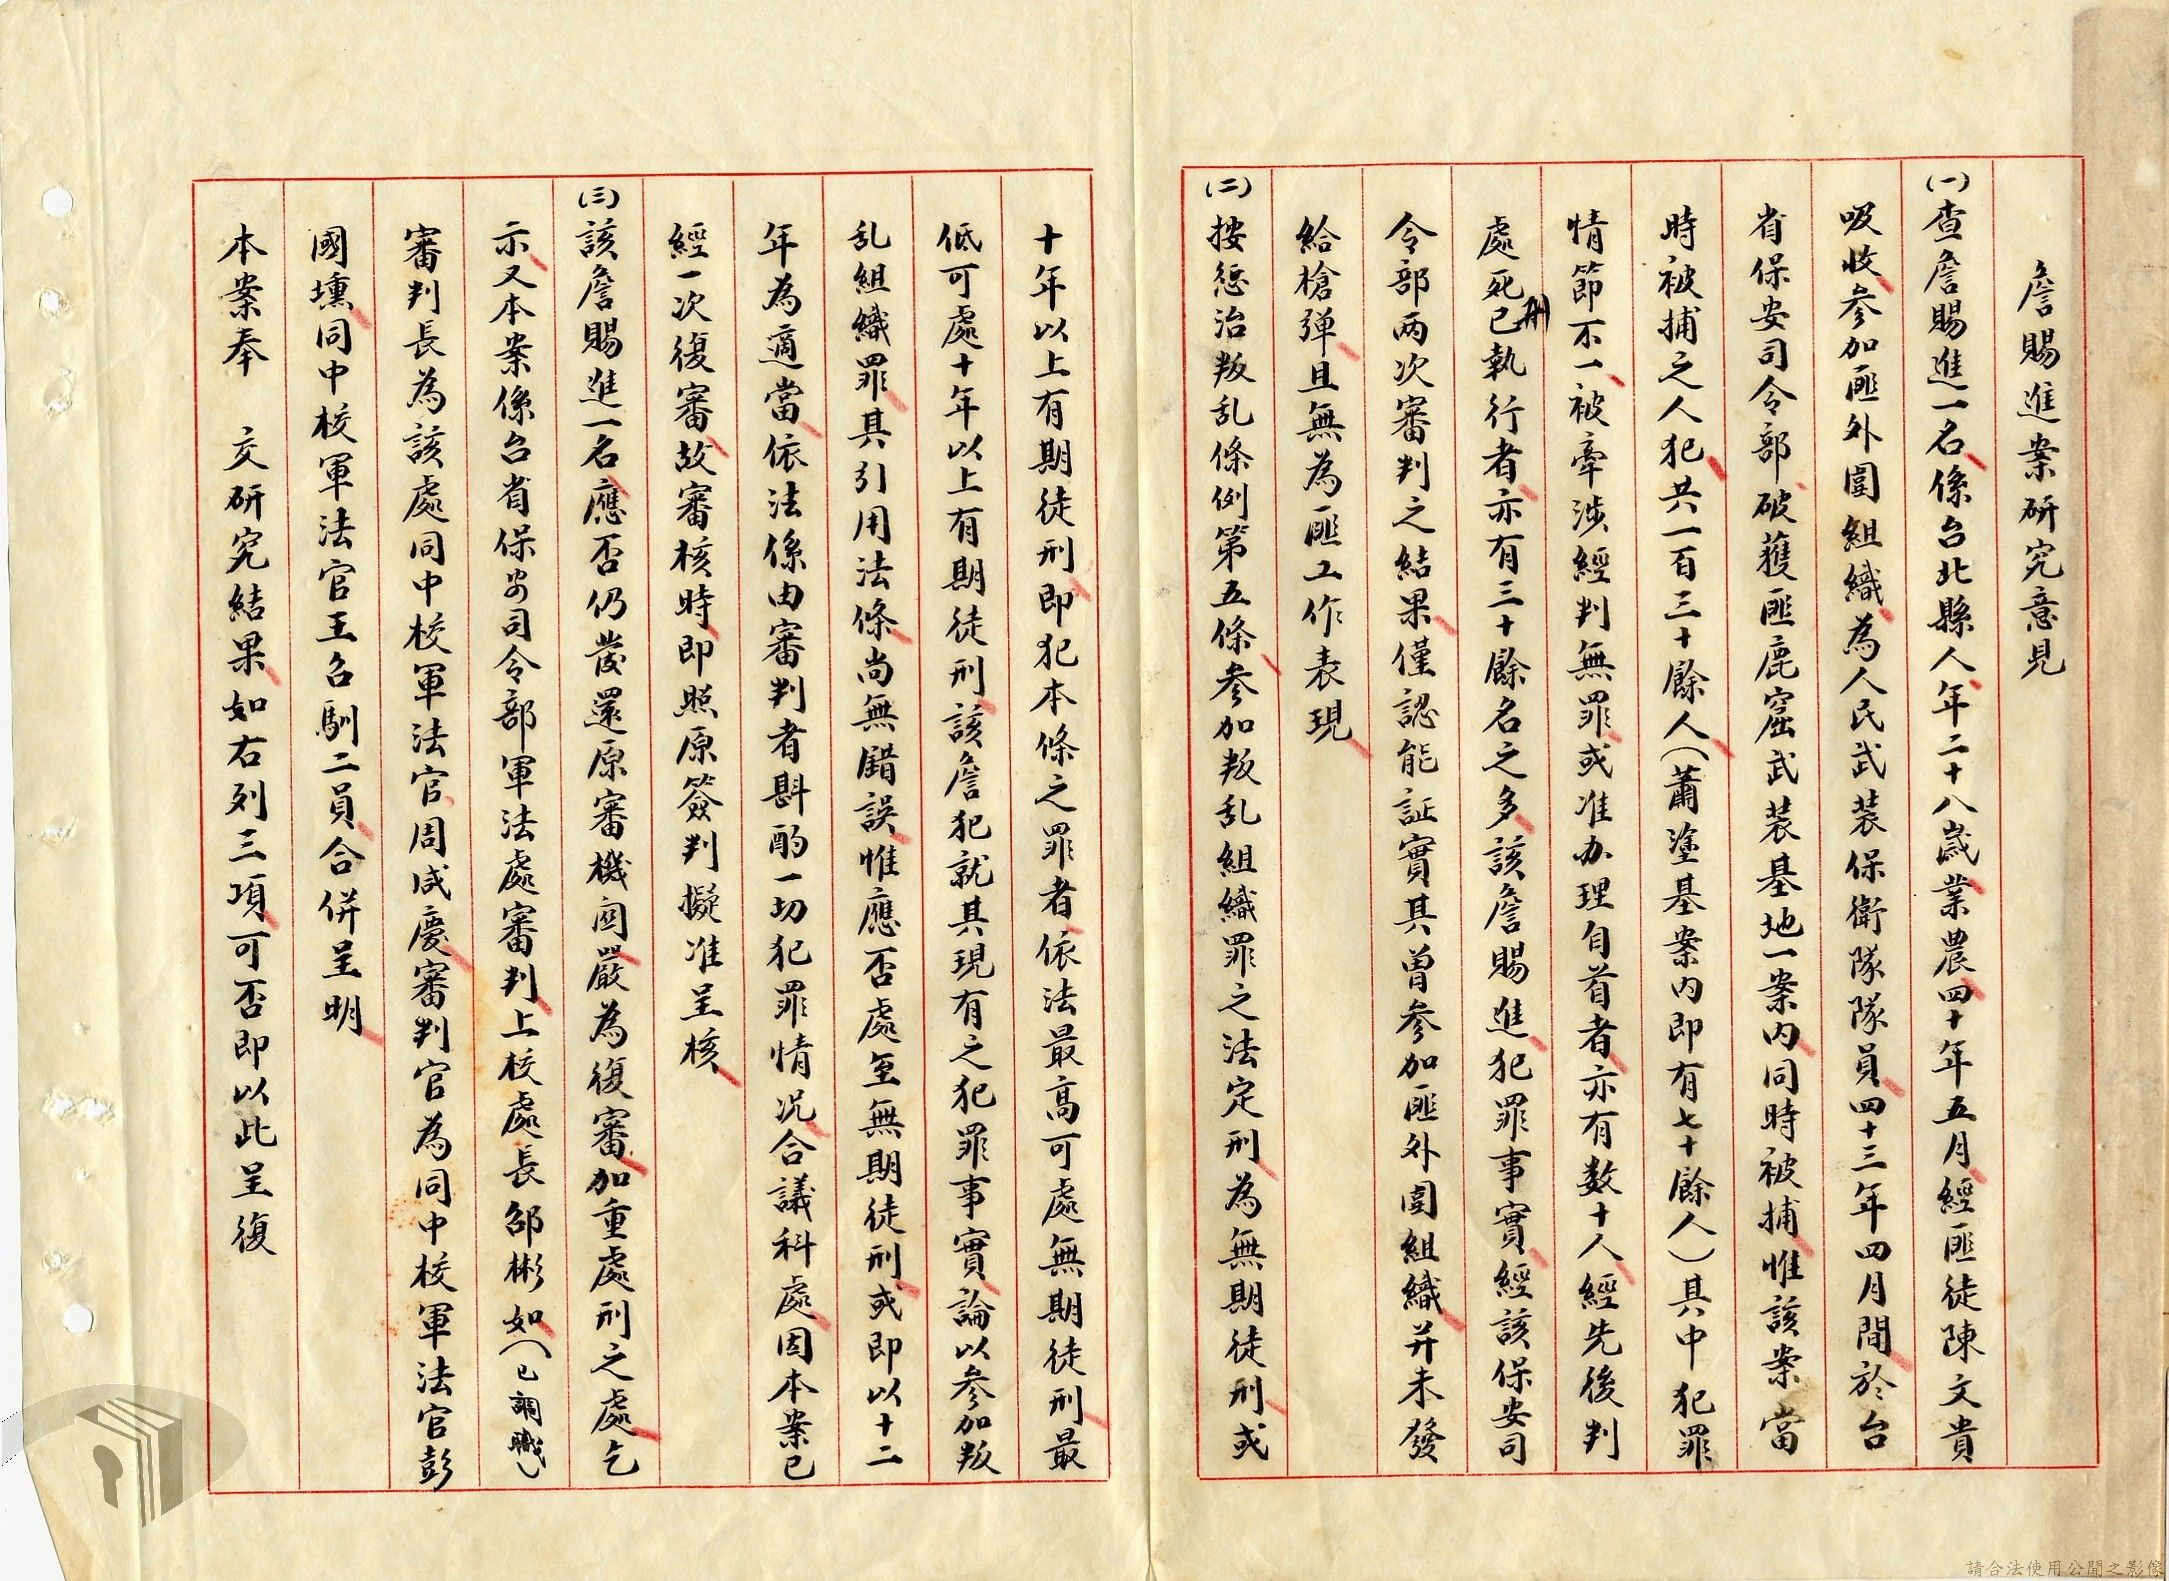 詹賜進案研究意見
(一)查詹賜進一名係台北縣人年二十八歲業農四十年五月經匪徒陳文貴
吸收參加匪外圍組織為人民武裝保衛隊隊員四十三年四月間於台
省保安司令部破獲匪鹿窟武裝基地一案內同時被捕惟該案當
時被捕之人犯共一百三十餘人(蕭塗基案內即有七十餘人)其中犯罪
情節不一被牽涉經判無罪或准办理自首者亦有数十人經先後判
處死刑已執行者亦有三十餘名之多該詹賜進犯罪事實經該保安司
令部两次審判之結果僅認能証實其曾參加匪外圍組織并未發
給槍弹且無為匪工作表現
(二)按惩治叛乱條例第五條參加叛乱組織罪之法定刑為無期徒刑或
十年以上有期徒刑即犯本條之罪者依法最高可處無期徒刑最
低可處十年以上有期徒刑該詹犯就其現有之犯罪事實論以參加叛
乱組織罪其引用法條尚無錯誤惟應否處至無期徒刑或即以十二
年為適當依法係由審判者斟酌一切犯罪情况合議科處因本案已
經一次復審故審核時即照原簽判擬准呈核
(三)該詹賜進一名應否仍發還原審機囪嚴為復審加重處刑之處乞
示又本案係台省保安司令部軍法處審判上校處長邰彬如(已調職)
審判長為該處同中校軍法官周咸慶審判官為同中校軍法官彭
國壎同中校軍法官王名馴二員合併呈明
本案奉　交研究結果如右列三項可否即以此呈復
請合法使用公開之影像